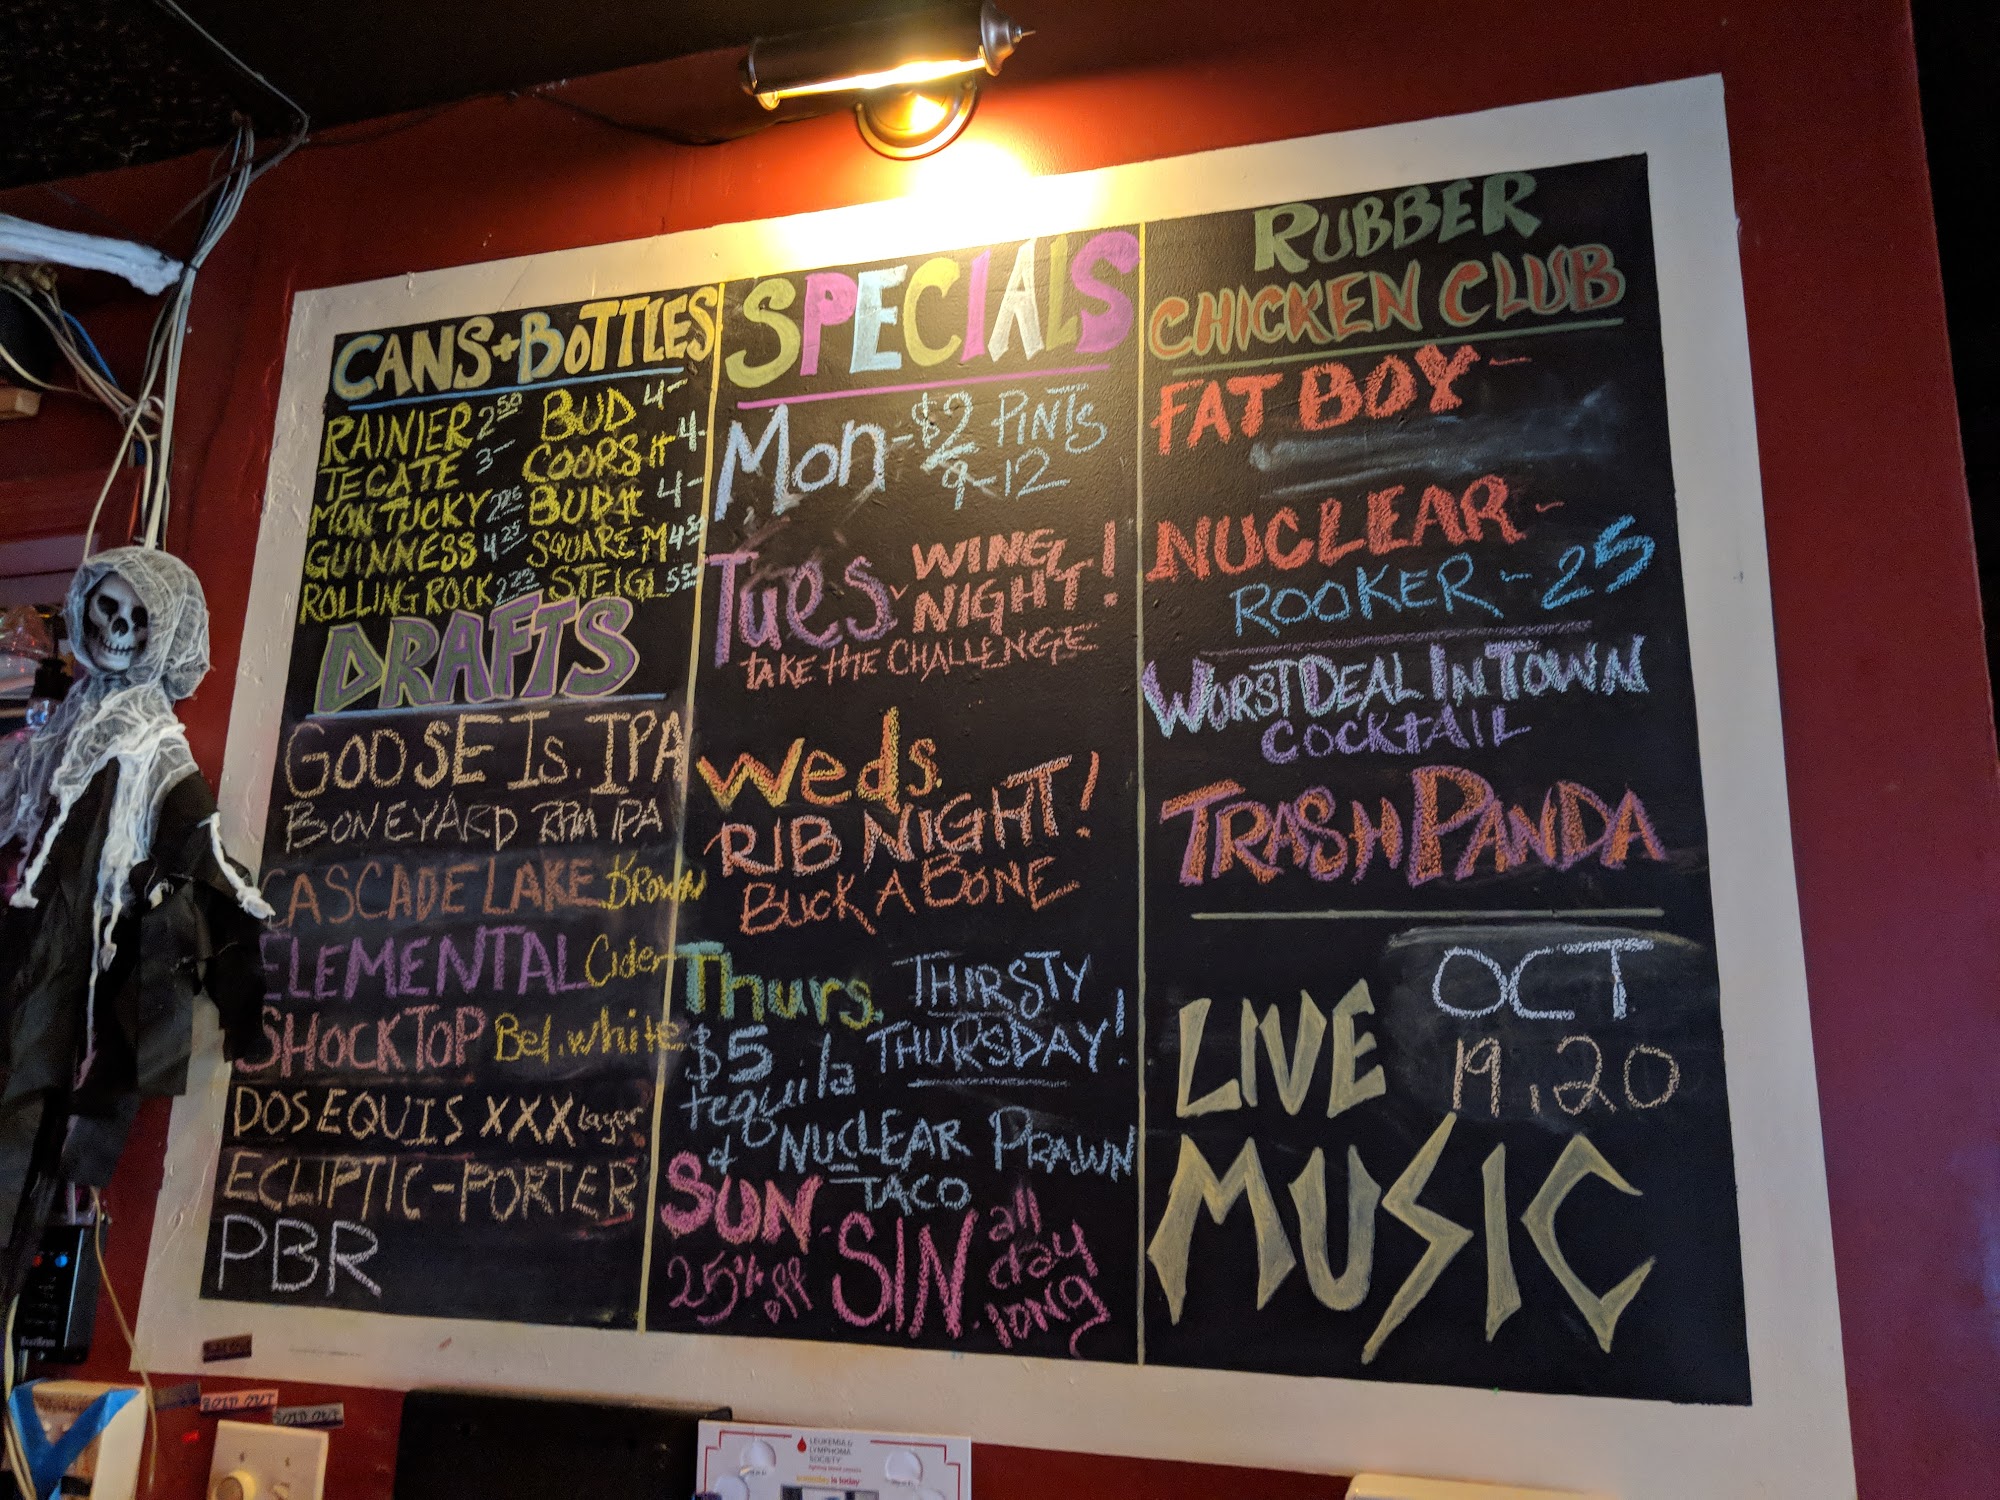 CANS + BOTTLES
RAINIER 2.50 BUD 4-
TECATE 3- COORS LT 4-
MONTUCKY BUD LT 4-
GUINNESS 4.25 SQUARE M 4.50
ROLLING ROCK 2.75 STEIGL 5.50
DRAFTS
GOOSE IS. IPA
BONEYARD RPM IPA
CASCADE LAKE BROWN
ELEMENTAL Cider
SHOCKTOP Bel. white
DOS EQUIS XXX Lager
ECLIPTIC - PORTER
PBR
SPECIALS
Mon - $2 PINTS
9-12
Tues. WING
NIGHT!
TAKE THE CHALLENGE
Weds.
RIB NIGHT!
BUCK A BONE
Thurs. THIRSTY
THURSDAY!
$5
tequila
& NUCLEAR PRAWN
TACO
SUN - S.I.N. all
day
long
25% off
RUBBER
CHICKEN CLUB
FAT BOY -
NUCLEAR -
ROOKER - 25
WORST DEAL IN TOWN
COCKTAIL
TRASH PANDA
LIVE
MUSIC
OCT
19, 20
SOLD OUT
SOLD OUT
LEUKEMIA &
LYMPHOMA
SOCIETY